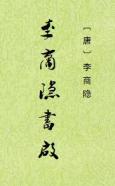 〔唐〕李商隐
李商隐書啟